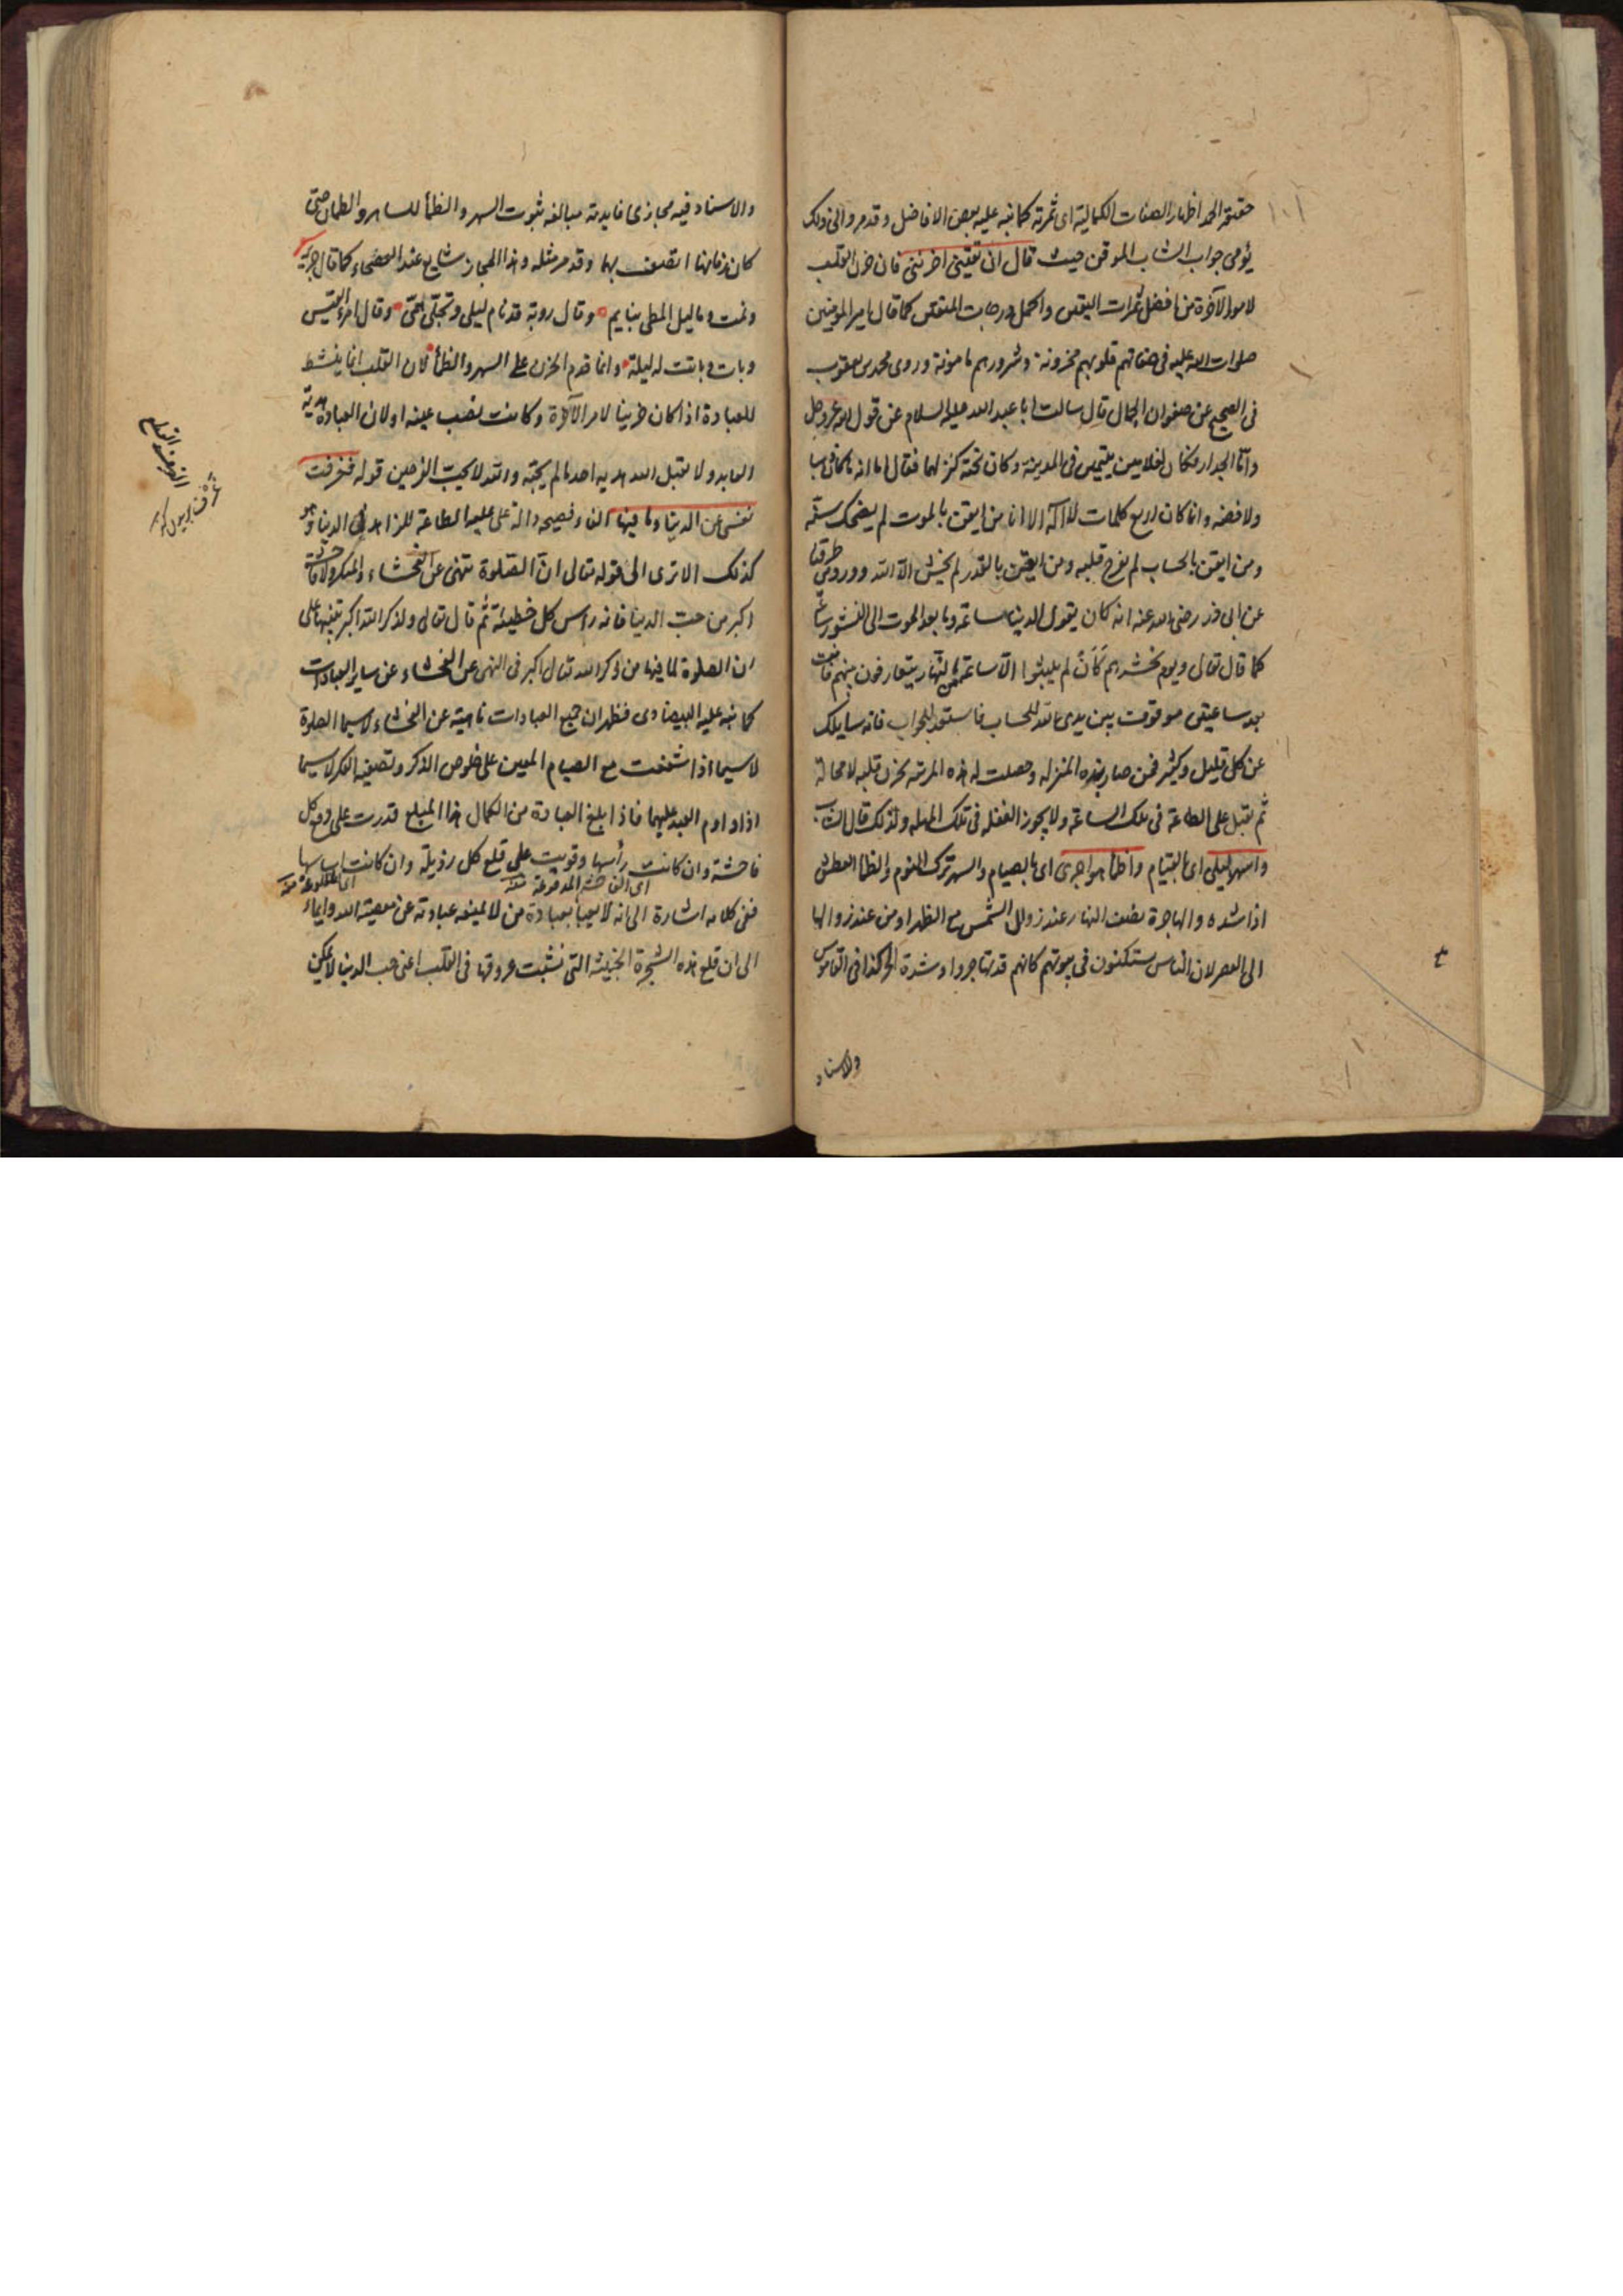 حقيقة الحمد اظهار الصفات الكمالية اى ثمرته كما نبه عليه بعض الافاضل وقد مر والى ذلك
يؤمى جواب الشاب الموقن حيث قال ان يقينى احزننى فان حزن القلب
لامور الآخرة من افضل ثمرات اليقين واكمل درجات المتقين كما قال امير المؤمنين
صلوات الله عليه فى صفاتهم قلوبهم محزونة وشرورهم مامونة وروى محمد بن يعقوب
فى الصحيح عن صفوان الجمال قال سالت ابا عبد الله عليه السلام عن قول الله عز وجل
واما الجدار فكان لغلامين يتيمين فى المدينة وكان تحته كنز لهما فقال اما انه ما كان ذهبا
ولا فضة وانما كان اربع كلمات لا اله الا انا من ايقن بالموت لم يضحك سنه
ومن ايقن بالحساب لم يفرح قلبه ومن ايقن بالقدر لم يخش الا الله وورد من طرقنا
عن ابى ذر رضى الله عنه انه كان يقول الدنيا ساعة وما بعد الموت الى النشور ساعة
كما قال تعالى ويوم نحشرهم كأن لم يلبثوا الا ساعة من النهار يتعارفون بينهم فانت
بعد ساعتين موقوف بين يدى الله للحساب فاستعد للجواب فانه سايلك
عن كل قليل وكثير فمن صار بهذه المنزله وحصلت له هذه المرتبه يحزن قلبه لا محالة
ثم يقبل على الطاعة فى تلك الساعة ولا يجوز الغفله فى تلك المهله ولذلك قال الشاب
واسهر ليلى اى بالقيام واظمأ هواجرى اى بالصيام والسهر ترك النوم والظما العطش
او اشده والهاجرة نصف النهار عند زوال الشمس مع الظهر او من عند زوالها
الى العصر لان الناس يستكنون فى بيوتهم كانهم قد تهاجروا وشدة الحر كذا فى القاموس
والاسناد
والاسناد فيه مجازى فايدته مبالغه ثبوت السهر والظمأ للساهر والظمآن حتى
كان زمانهما اتصف بهما وقد مر مثله وهذا المجاز شايع عند الفصحاء كما قال جرير
ونمت وما ليل المطى بنايم وقال روبة قد نام ليلى وتجلى همى وقال امرء القيس
وبات وباتت له ليلة وانما قدم الحزن على السهر والظمأ لان القلب انما ينشط
للعبادة اذا كان حزينا لامر الآخرة وكانت نصب عينه او لان العبادة هدية
العابد ولا يقبل الله هدية احد ما لم يحبه والله لا يحب الفرحين قوله فعزفت
نفسى عن الدنيا وما فيها الفاء فصيحه دالة على علية الطاعة للزهد فى الدنيا وهو
كذلك الا ترى الى قوله تعالى ان الصلوة تنهى عن الفحشاء والمنكر ولا فاحشة
اكبر من حب الدنيا فانه راس كل خطيئة ثم قال تعالى ولذكر الله اكبر تنبيها على
ان الصلوة لما فيها من ذكر الله تعالى اكبر فى النهى عن الفحشاء عن ساير العبادات
كما نبه عليه البيضاوى فظهر ان جميع العبادات ناهية عن الفحشاء لا سيما الصلوة
لا سيما اذا شفعت مع الصيام المعين على خلوص الذكر وتصفية الفكر لا سيما
اذا داوم العبد عليهما فاذا بلغ العبادة من الكمال هذا المبلغ قدرت على دفع كل
فاحشة وان كانت رأسها وقويت على قلع كل رذيلة وان كانت اساسها
اى الفاحشة المدفوعة منه
اى المقلوعة منه
ففى كلامه اشارة الى انه لا يعبأ بعبادة من لا يمنعه عبادته عن معصية الله وايماء
الى ان قلع هذه الشجرة الخبيثه التى نشبت عروقها فى القلب اعنى حب الدنيا لا يمكن